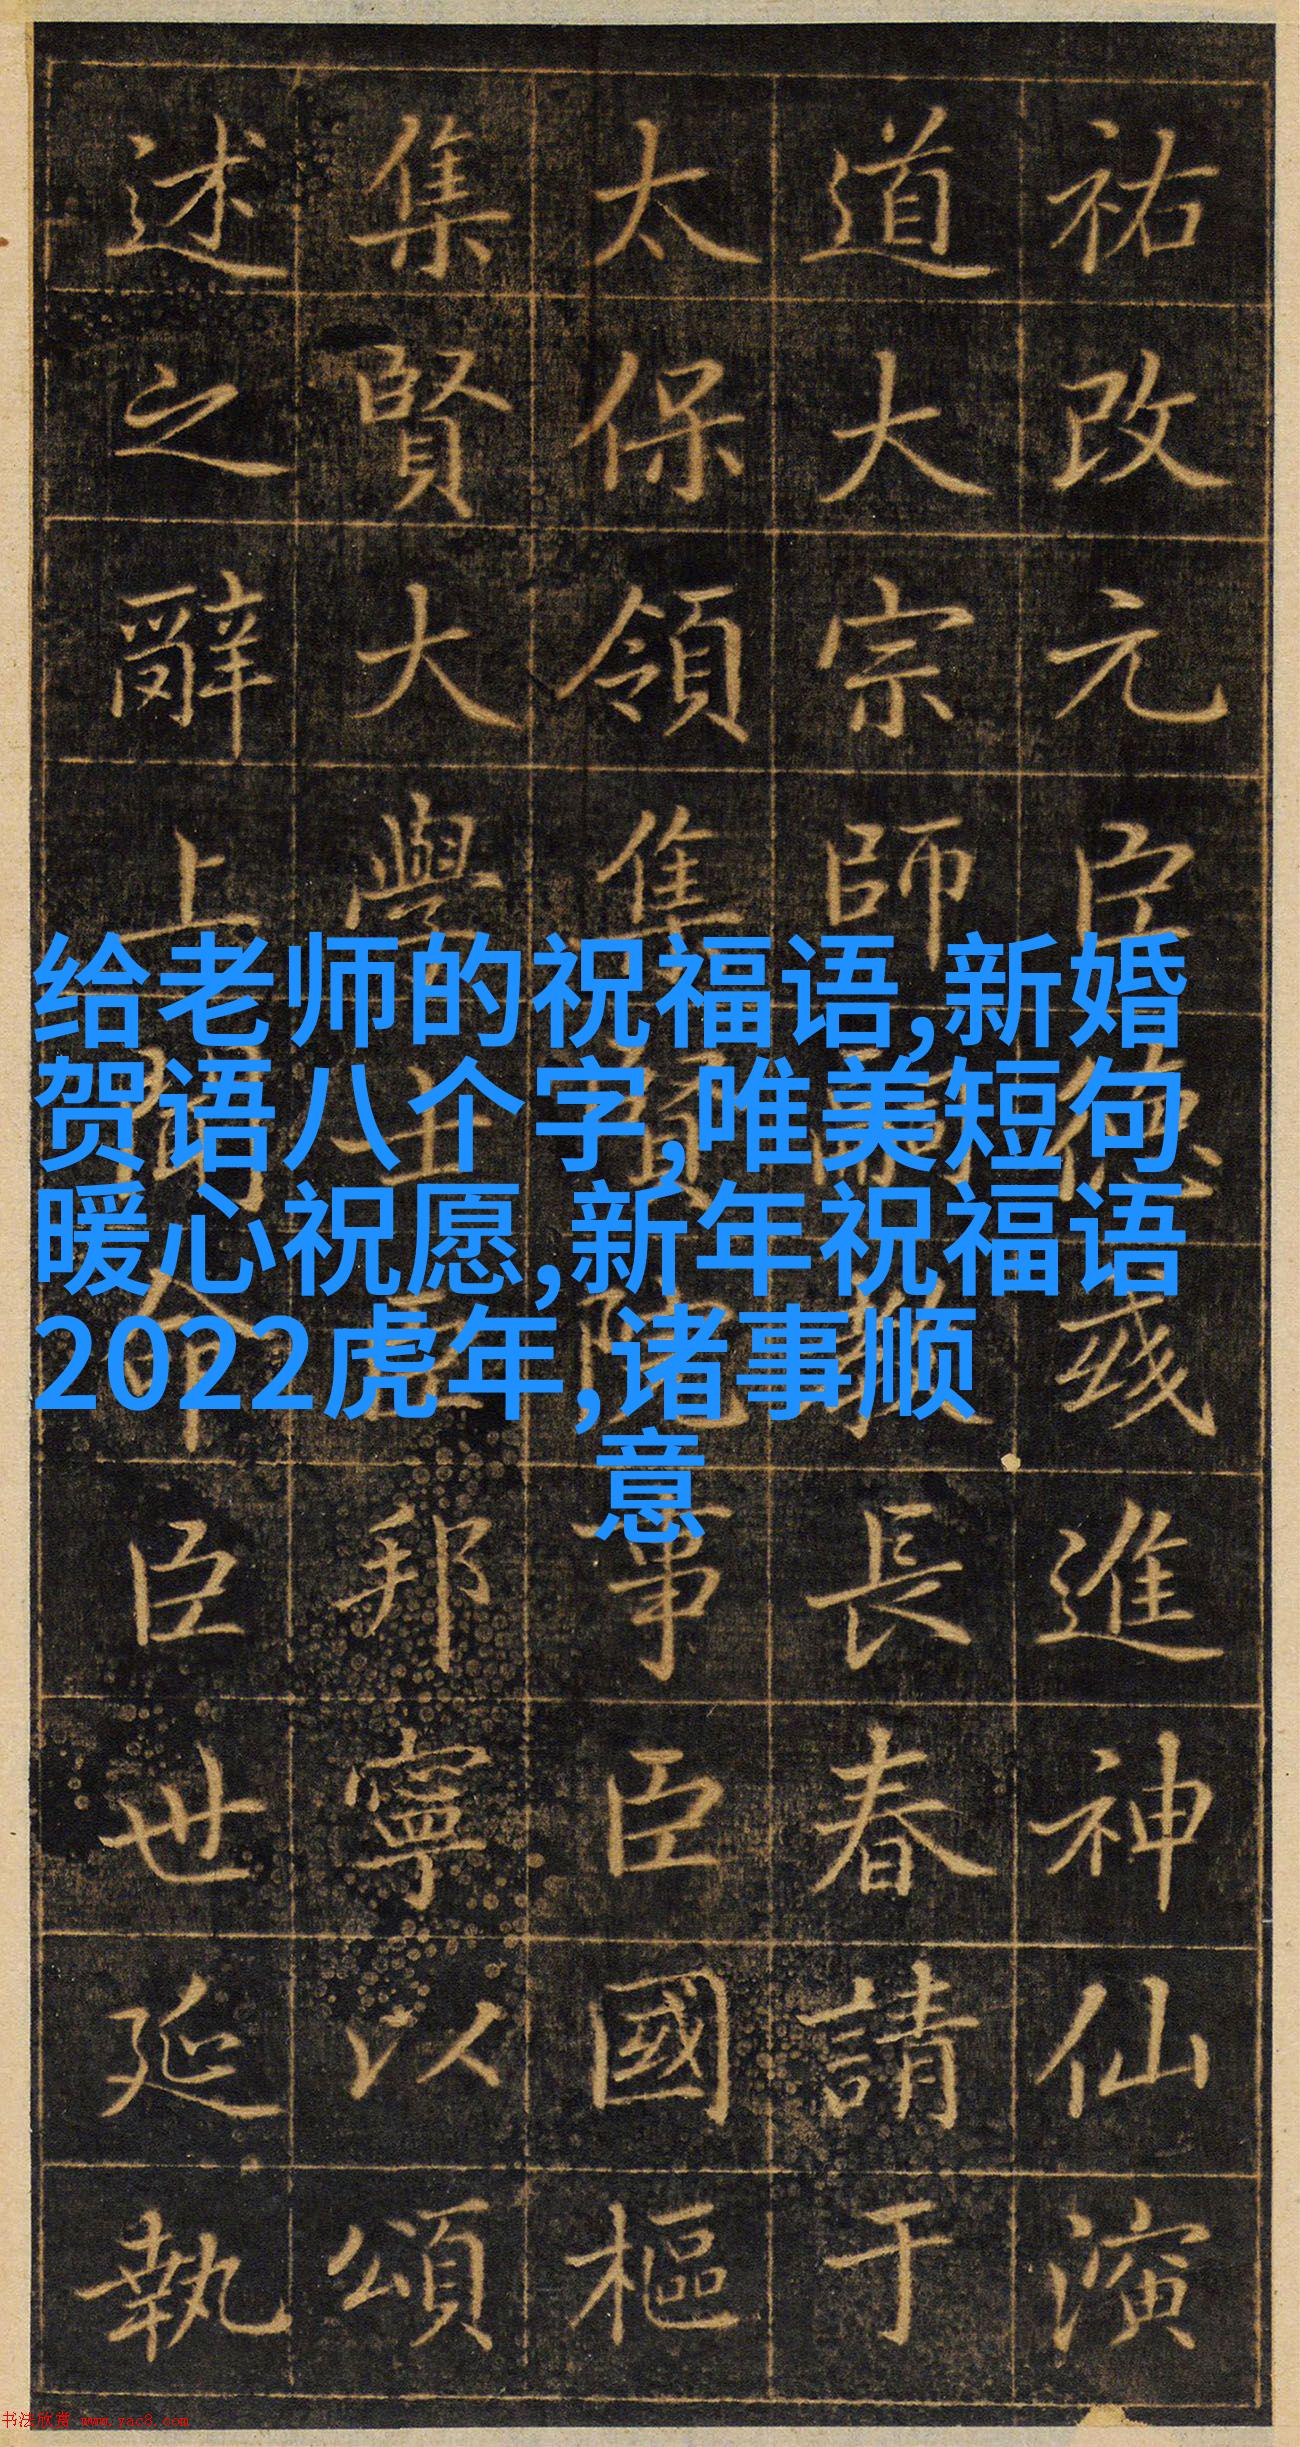 祐改元臣德彧進神仙演
道大宗師長春請于
太保領集賢院事臣國樞
集賢大學士臣邦寧以頌
述之辭上聞命臣世延執
给老师的祝福语,新婚
贺语八个字,唯美短句
暖心祝愿,新年祝福语
2022虎年,诸事顺
意
书法欣赏 www.yac8.com